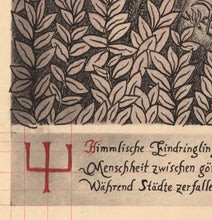 Himmlische Eindringlin
Menschheit zwischen göt
Während Städte zerfalle